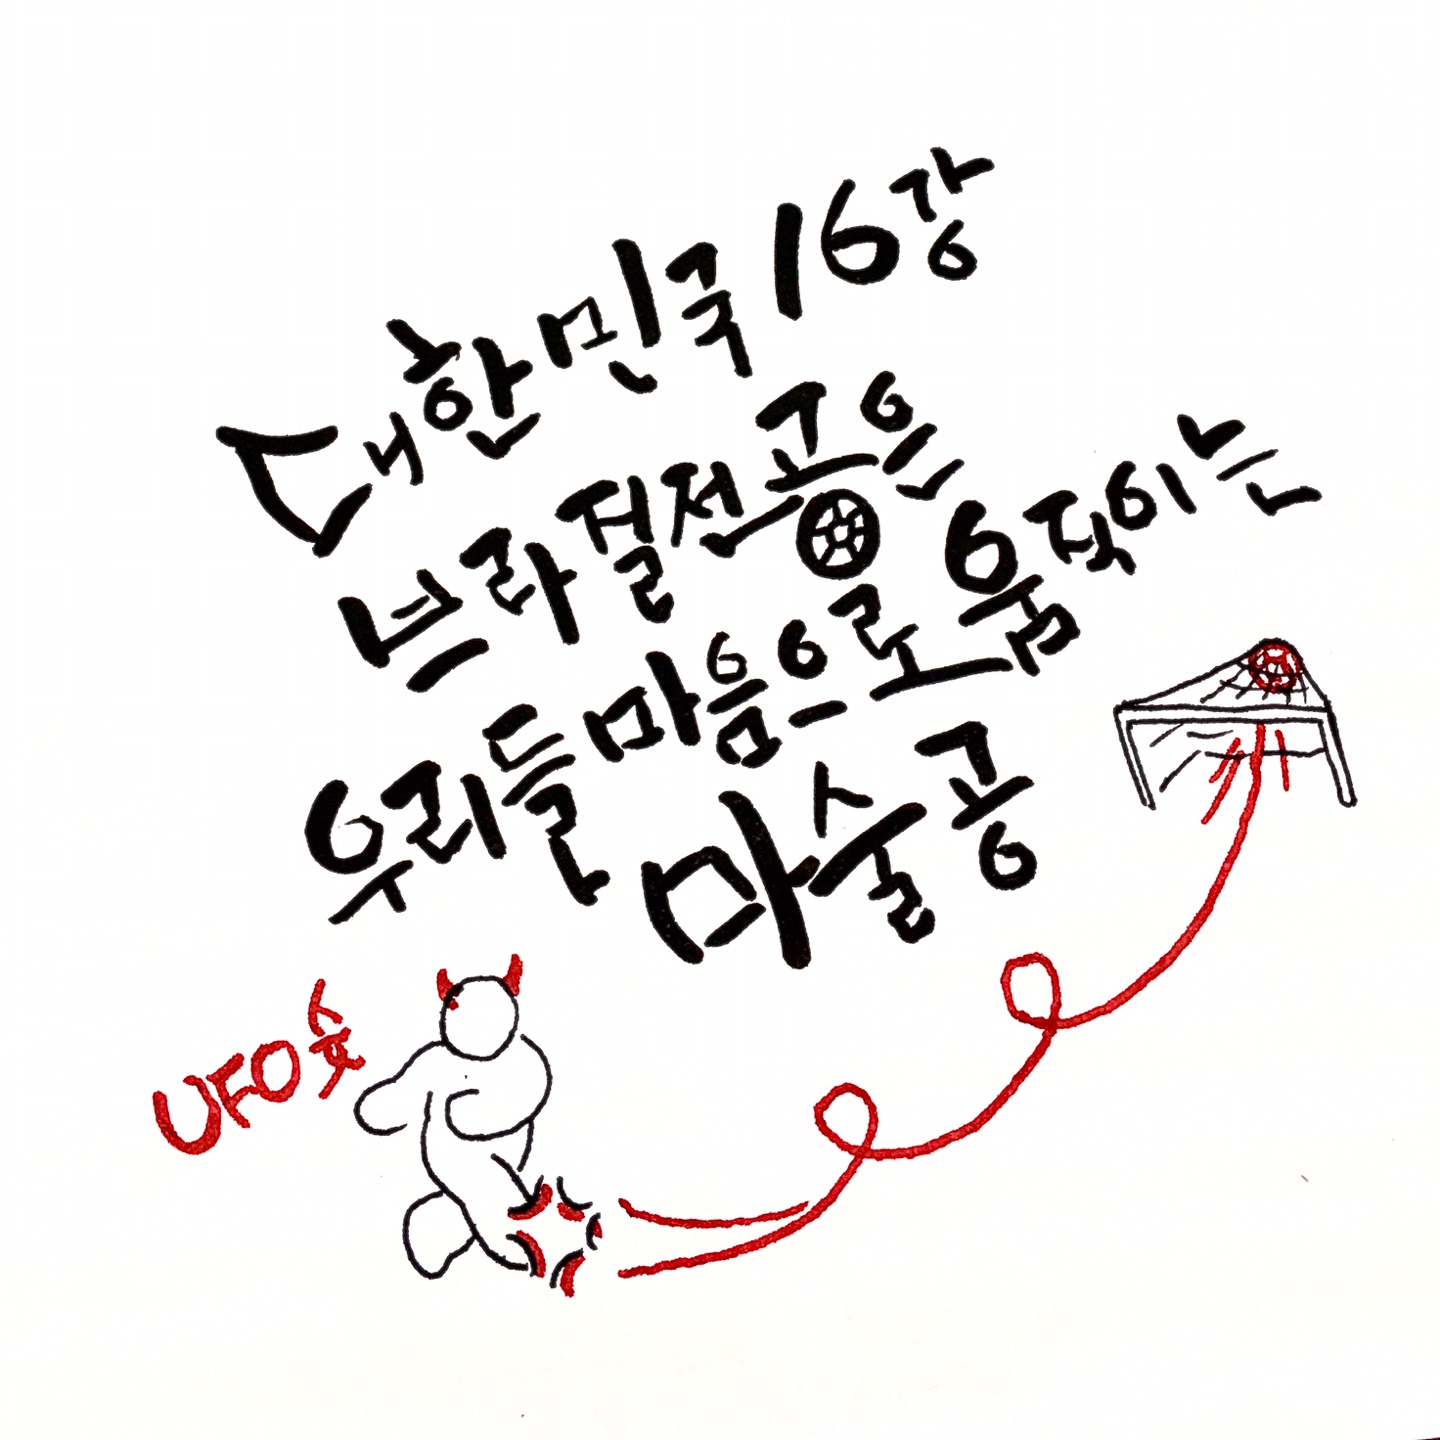 대한민국 16강
브라질전 공은
우리들 마음으로 움직이는
마술공
UFO슛